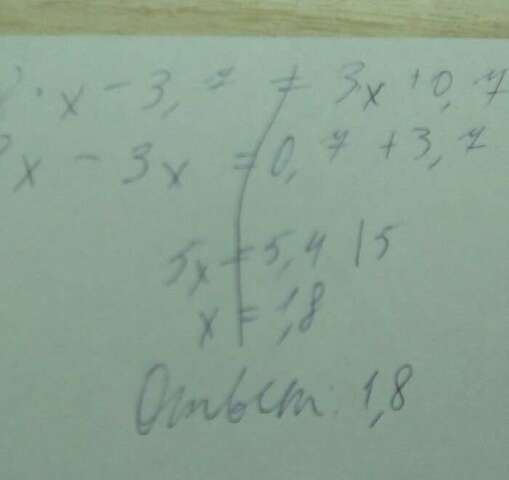 · x - 3,7 = 3x + 0,7
x - 3x = 0,7 + 3,7
5x = 5,4 | 5
x = 1,8
Ответ: 1,8